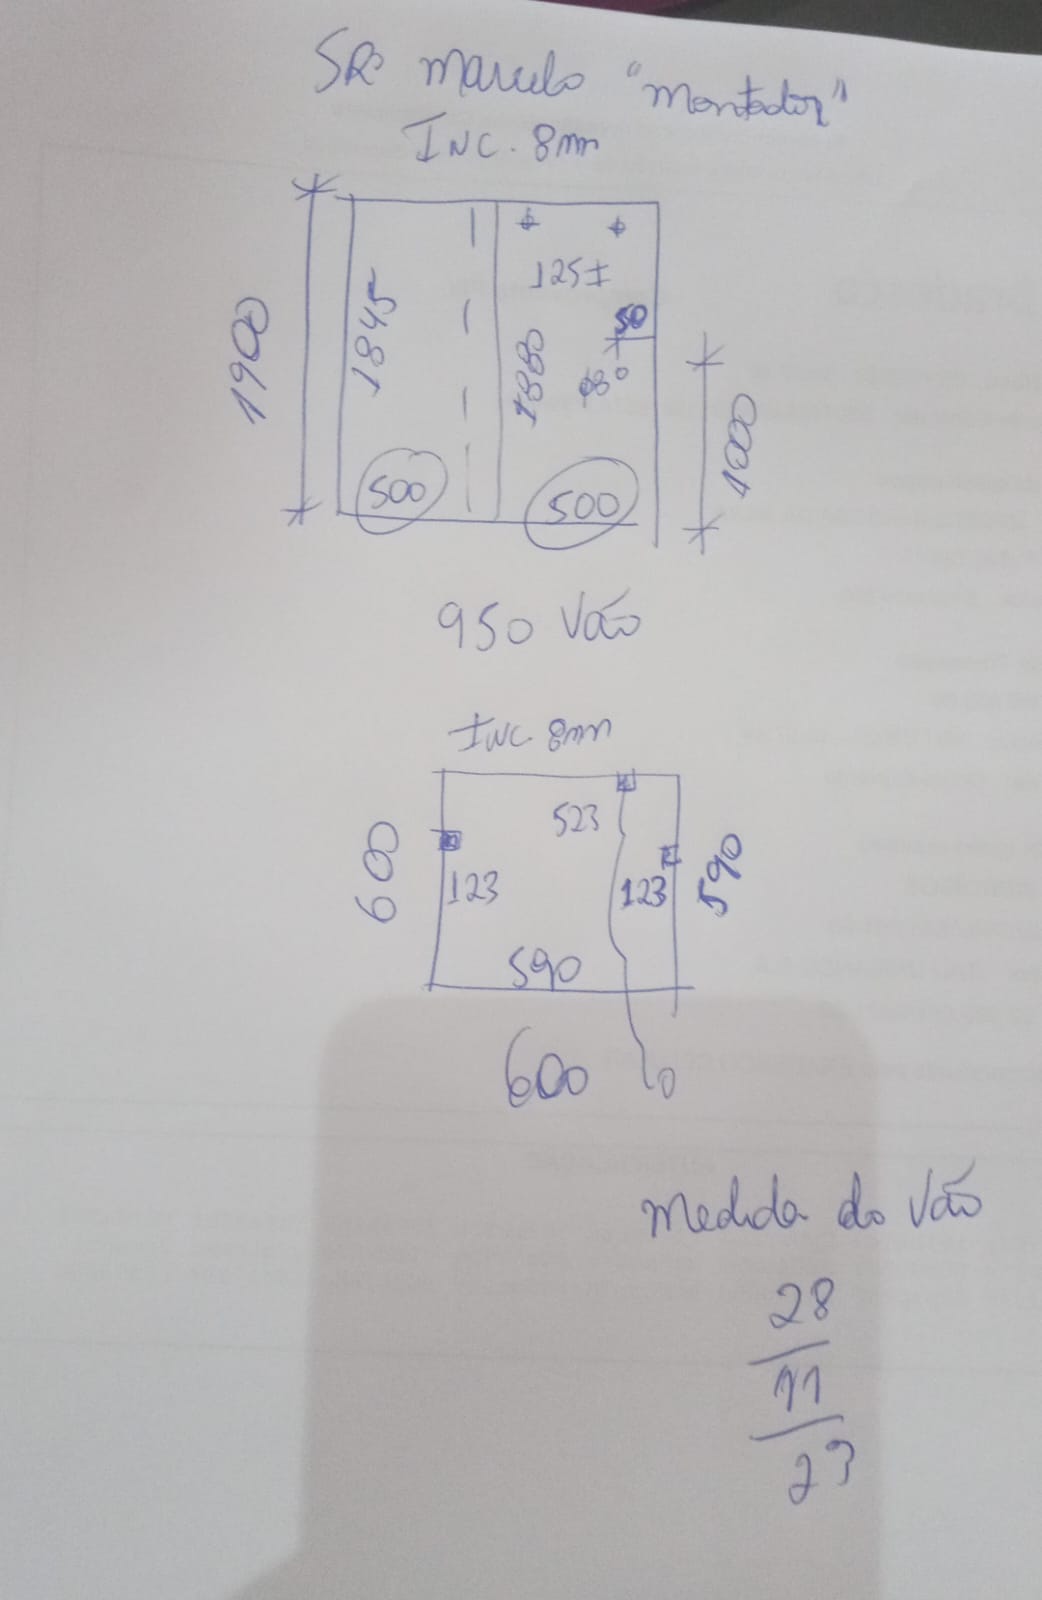 SR. Marcelo "Montador"
INC. 8mm
1900
1845
125I
50
1880
1000
500
500
950 Vão
INC. 8mm
600
523
123
123
590
590
600
Medida do Vão
28
11
23